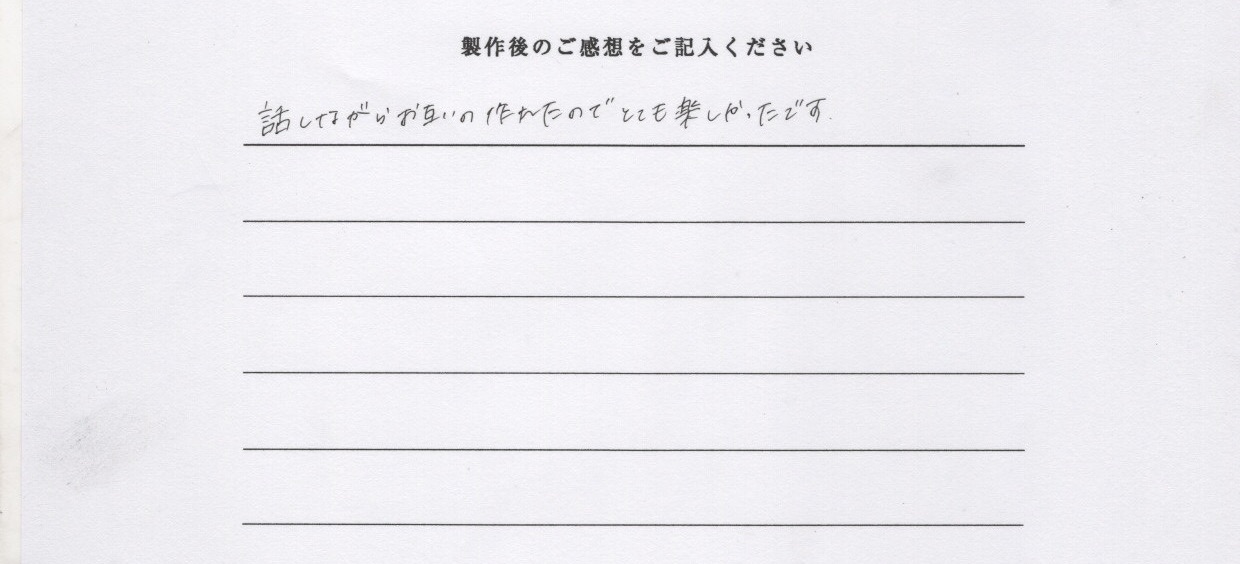 製作後のご感想をご記入ください
話しながらお互いの作れたのでとても楽しかったです.